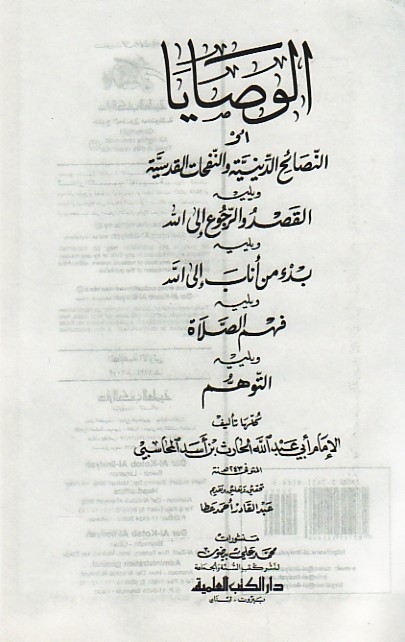 الوصايا
أو
النصائح الدينية والنفحات القدسية
ويليه
القصد والرجوع إلى الله
ويليه
بدء من أناب إلى الله
ويليه
فهم الصلاة
ويليه
التوهم
كلها تأليف
الإمام أبي عبد الله الحارث بن أسد المحاسبي
المتوفى ٢٤٣ سنة
تحقيق وتعليق وتقديم
عبد القادر أحمد عطا
منشورات
محمد علي بيضون
لنشر كتب السنة والجماعة
دار الكتب العلمية
بيروت - لبنان